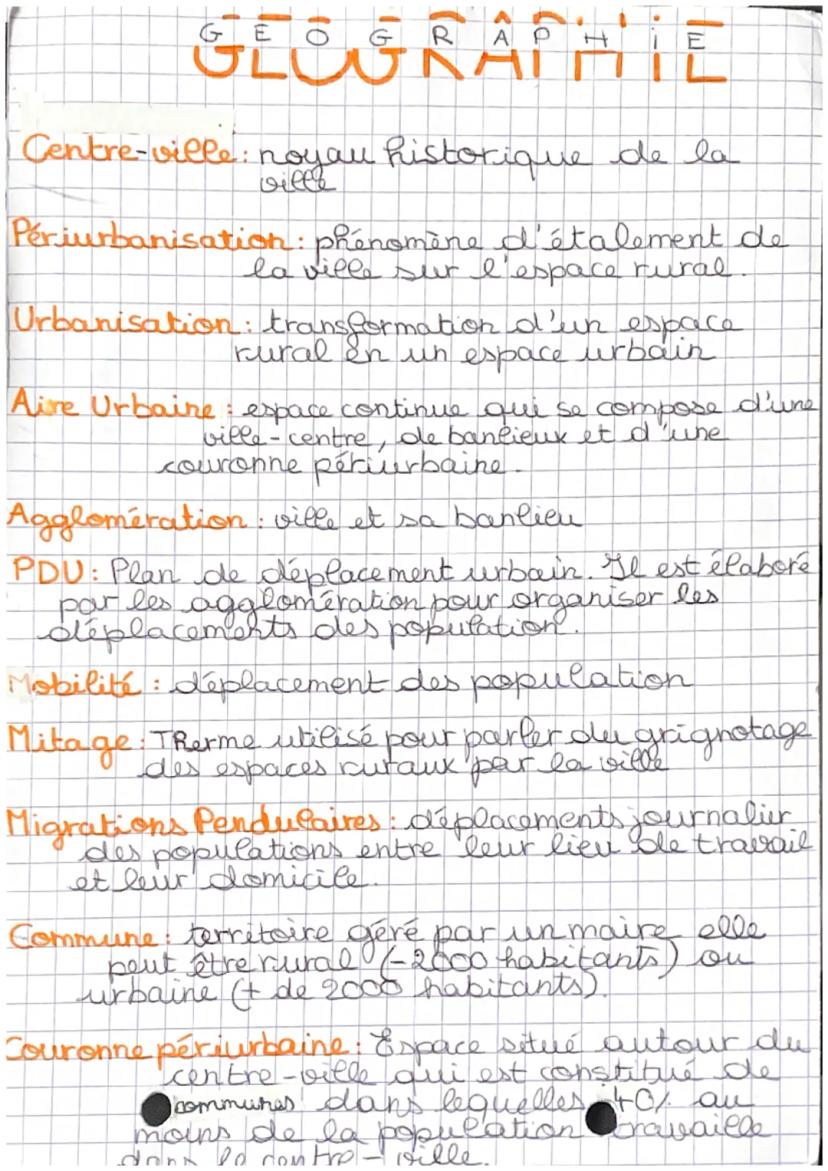 GÉOGRAPHIE
Centre-ville : noyau historique de la
ville
Périurbanisation : phénomène d'étalement de
la ville sur l'espace rural.
Urbanisation : transformation d'un espace
rural en un espace urbain
Aire Urbaine : espace continue qui se compose d'une
ville-centre, de banlieux et d'une
couronne périurbaine.
Agglomération : ville et sa banlieu
PDU : Plan de déplacement urbain. Il est élaboré
par les agglomération pour organiser les
déplacements des population.
Mobilité : déplacement des population
Mitage : Therme utilisé pour parler du grignotage
des espaces ruraux par la ville
Migrations Pendulaires : déplacements journalier
des populations entre leur lieu de travail
et leur domicile.
Commune : territoire géré par un maire elle
peut être rural (-2000 habitants) ou
urbaine (+ de 2000 habitants).
Couronne périurbaine : Espace situé autour du
centre-ville qui est constitué de
communes dans lequelles 40% au
moins de la population travaille
dans le centre-ville.